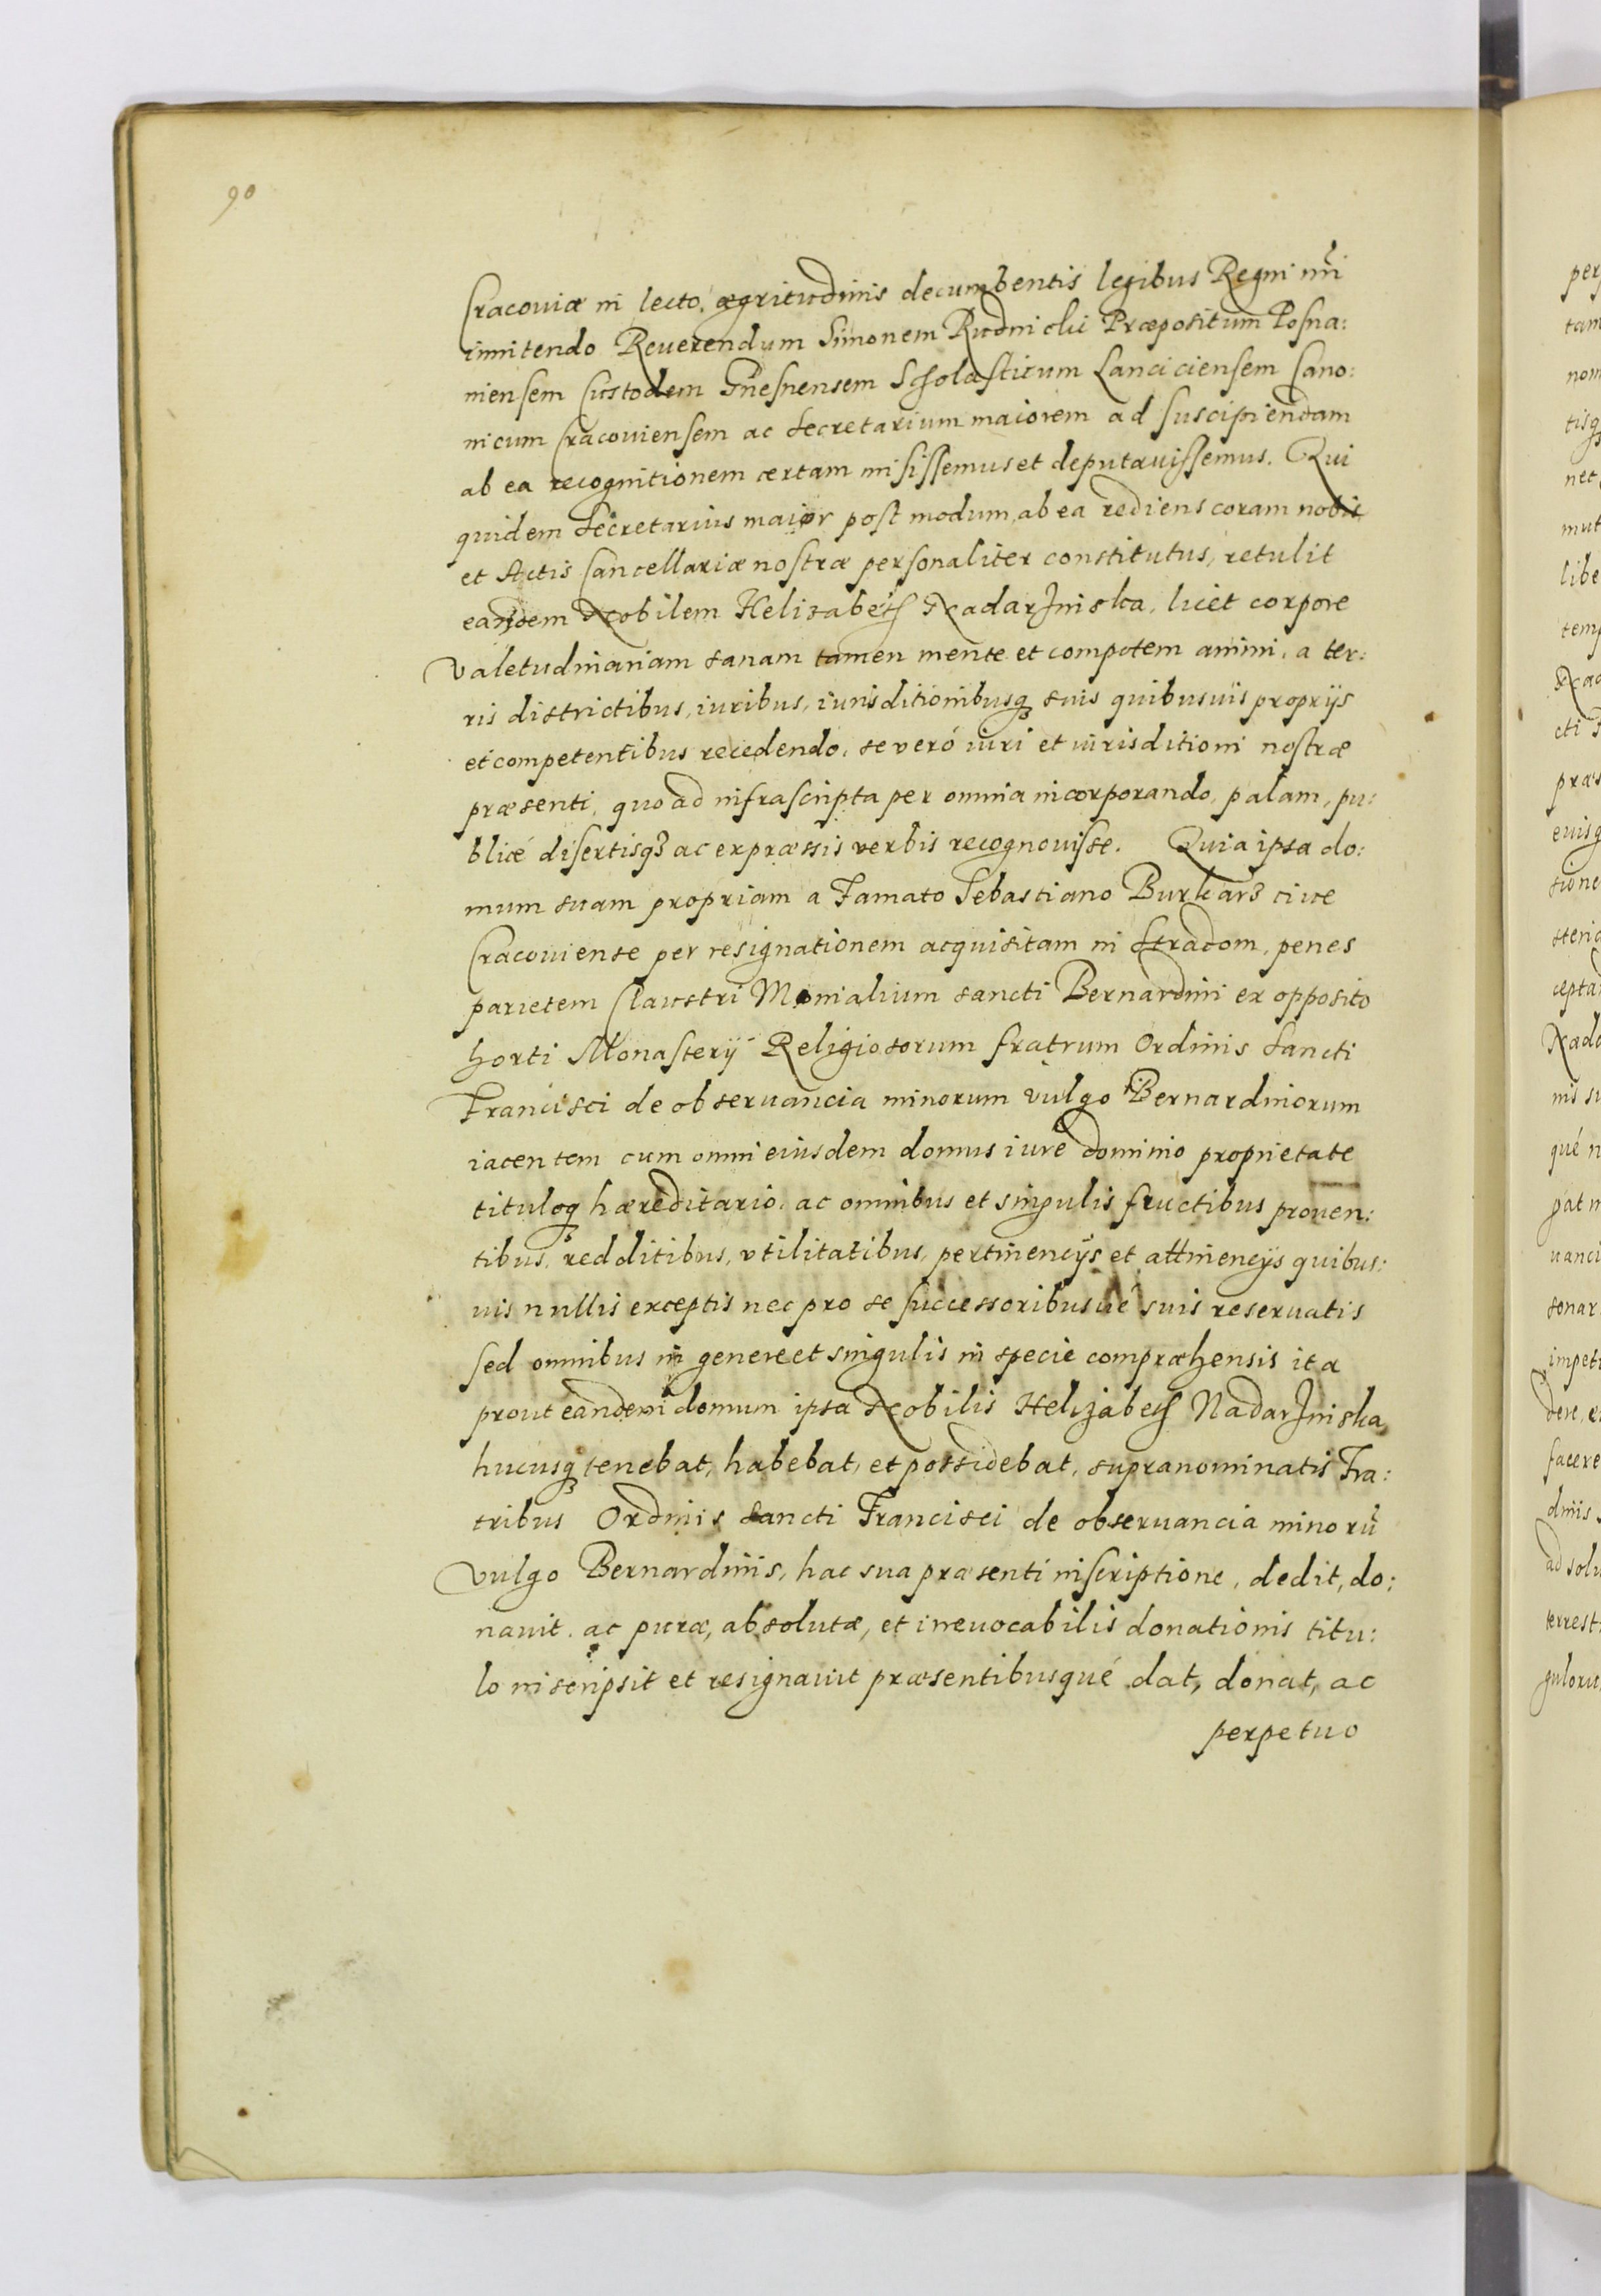 90
Cracoviæ in lecto, ægritudinis decumbentis legibus Regni nr̃i
innitendo Reuerendum Simonem Rudnicki Præpositum Posna:
niensem Custodem Gnesnensem Scholasticum Lanciciensem Cano:
nicum Cracouiensem ac Secretarium maiorem ad suscipiendam
ab ea recognitionem certam misissemus et deputauissemus. Qui
quidem Secretarius maior post modum, ab ea rediens coram nobis
et Actis Cancellariæ nostræ personaliter constitutus, retulit
eandem Nobilem Helizabeth Nadarzinska, licet corpore
valetudinariam sanam tamen mente et compotem animi, a ter:
ris districtibus, iuribus, iurisditionibusq suis quibusuis proprijs
et competentibus recedendo, se veró iuri et iurisditioni nostræ
præsenti, quo ad infrascripta per omnia incorporando, palam, pu:
blicé disertisq3 ac expræssis verbis recognouisse. Quia ipsa do:
mum suam propriam a Famato Sebastiano Burkarz ciue
Cracouiense per resignationem acquisitam in Stradom, penes
parietem Claustri Monialium sancti Bernardini ex opposito
horti Monasterij Religiosorum fratrum Ordinis Sancti
Francisci de obseruancia minorum vulgo Bernardinorum
iacentem cum omni eiusdem domus iure dominio proprietate
tituloq hæreditario, ac omnibus et singulis fructibus prouen:
tibus, redditibus, vtilitatibus, pertinencijs et attinencijs quibus:
uis nullis exceptis nec pro se successoribusué suis reseruatis
sed omnibus in genere et singulis in specie compræhensis ita
prout eandem domum ipsa Nobilis Helizabeth Nadarzinska,
hucusq tenebat, habebat, et possidebat, supranominatis Fra:
tribus Ordinis Sancti Francisci de obseruancia minorũ
vulgo Bernardinis, hac sua præsenti inscriptione, dedit, do:
nauit, ac puræ, absolutæ, et irreuocabilis donationis titu:
lo inscripsit et resignauit præsentibusqué dat, donat, ac
perpetuo